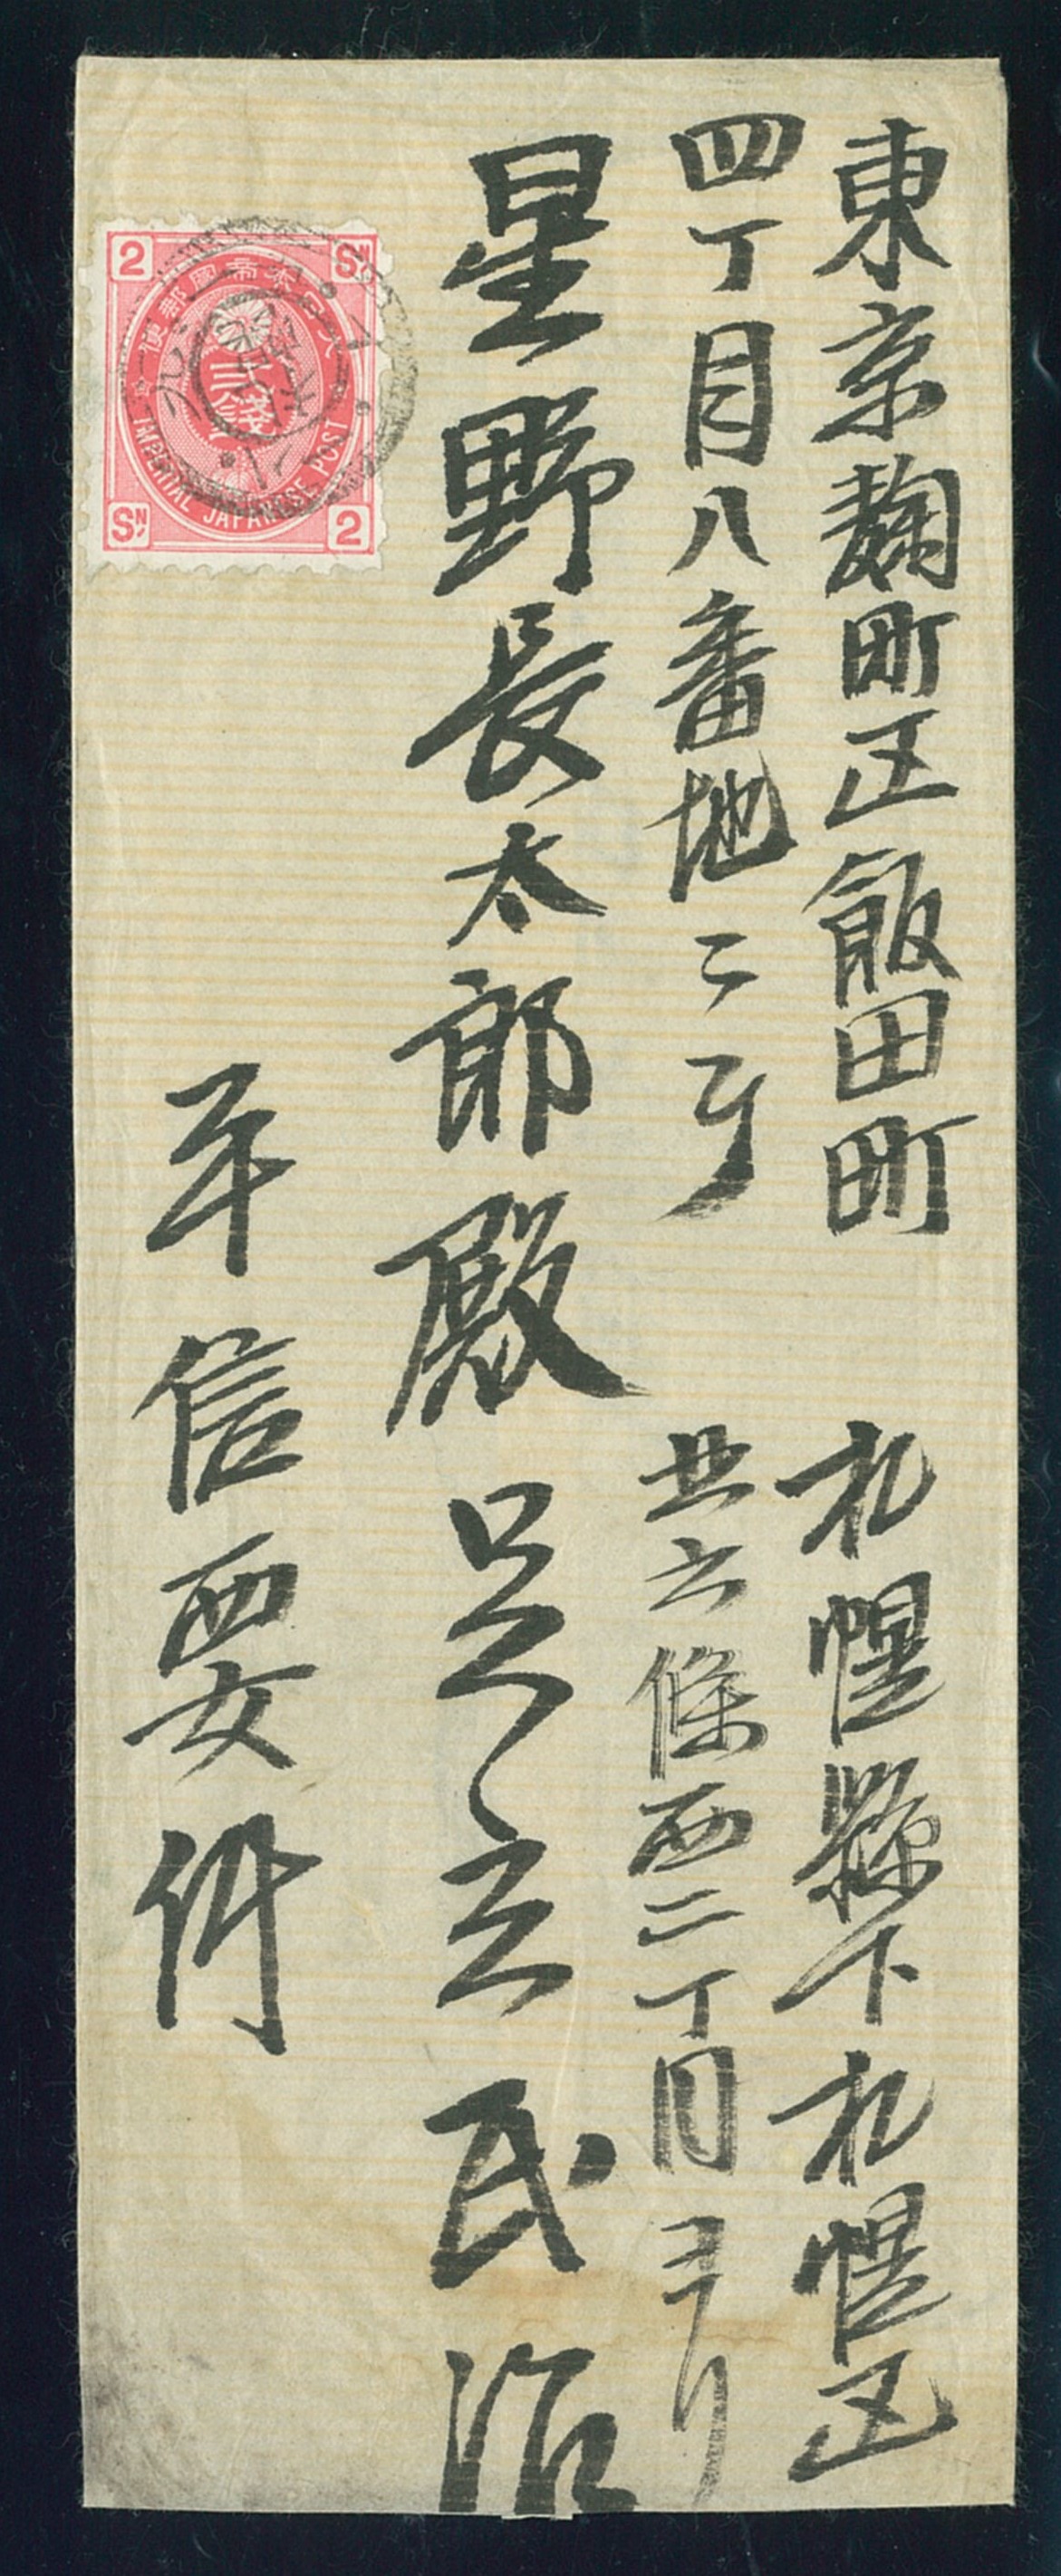 東京麹町区飯田町
四丁目八番地ニテ
星野長太郎殿
札幌縣下札幌区
北六條西二丁目ヨリ
足立民治
平信要件
2 SN
大日本帝國郵便
二銭
IMPERIAL JAPANESE POST
SN 2